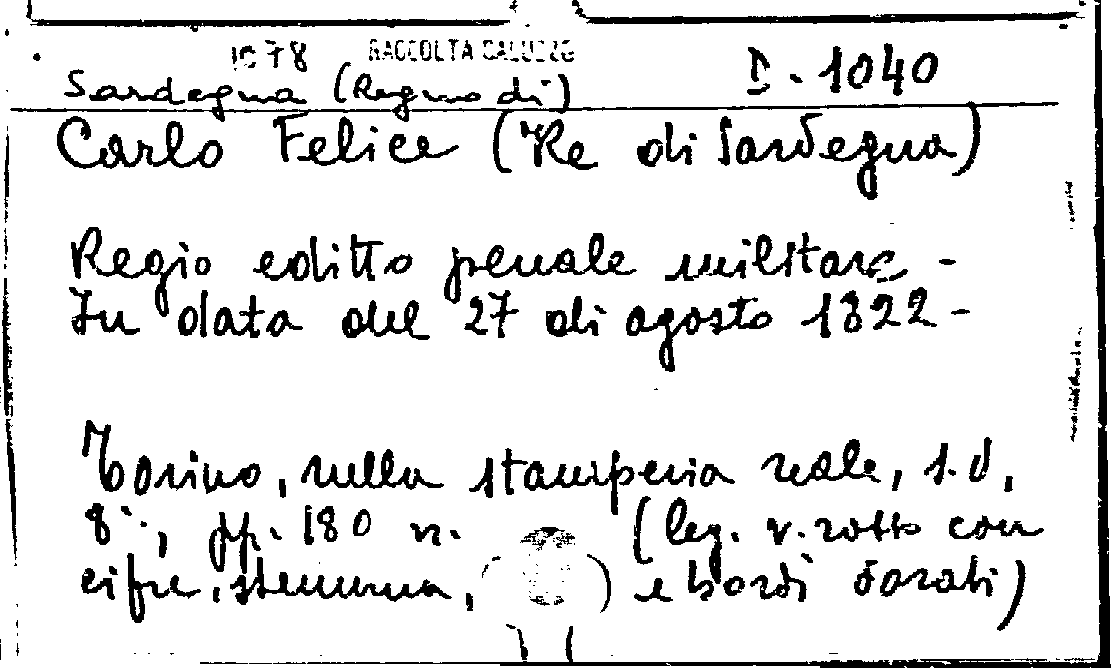 1078 RACCOLTA D. 1040
Sardegna (Regno di)
Carlo Felice (Re di Sardegna)
Regio editto penale militare -
In data del 27 di agosto 1822 -
Torino, nella stamperia reale, s.d,
8°, pp. 180 n. (leg. v. rosso con
cifre, stemma, e bordi dorati)